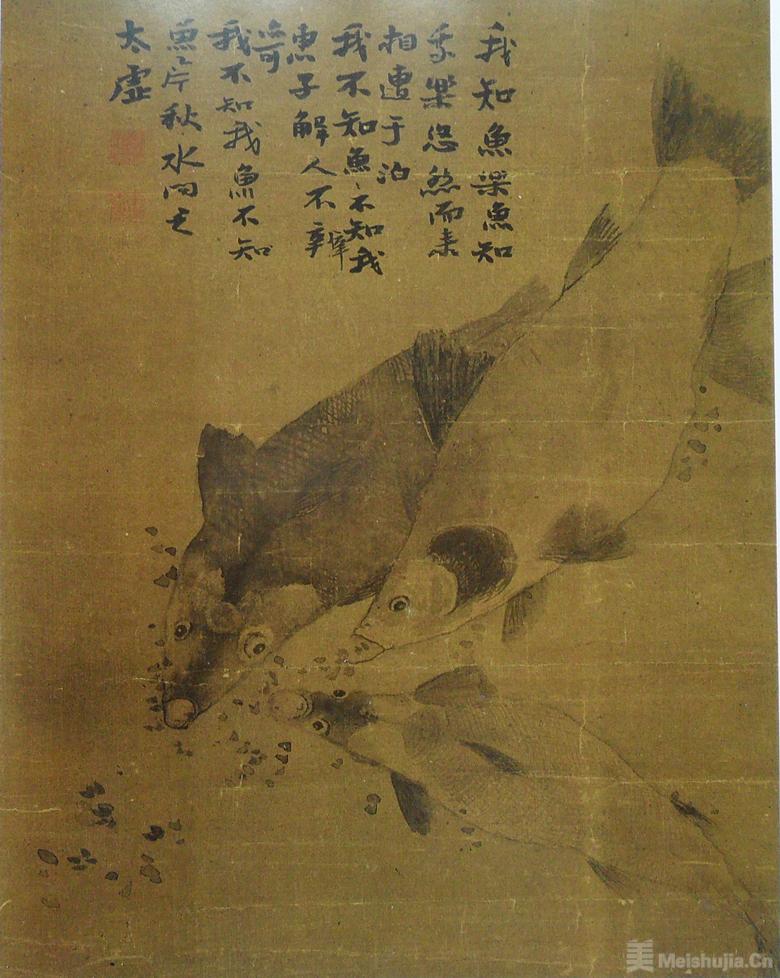 我知魚樂魚知
我樂悠然而来
相遭于泊
我不知魚〻不知我
惠子解人不辨
我不知我魚不知
魚〻片秋水问之
太虛
美 Meishujia.Cn